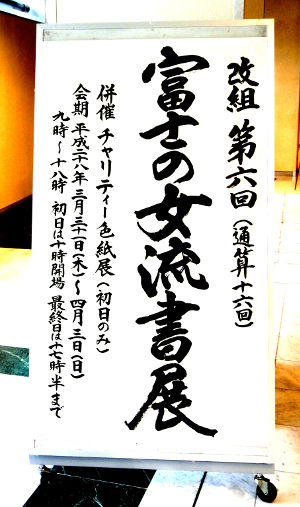 改組 第六回(通算十六回)
富士の女流書展
併催 チャリティー色紙展(初日のみ)
会期 平成二八年三月三十一日(木)～四月三日(日)
九時～十八時 初日は十時開場 最終日は十七時半まで